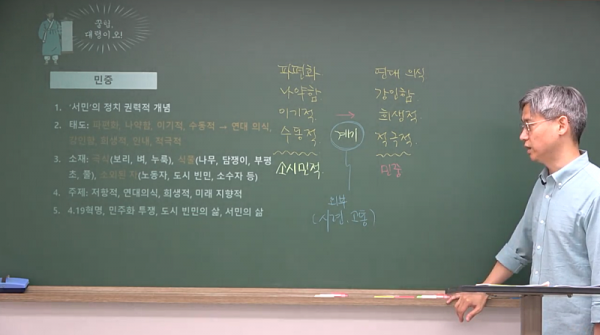 쫄림,
대령이오!
민중
1. '서민'의 정치 권력적 개념
2. 태도: 파편화, 나약함, 이기적, 수동적 → 연대 의식,
강인함, 희생적, 인내, 적극적
3. 소재: 곡식(보리, 벼, 누룩), 식물(나무, 담쟁이, 부평
초, 풀), 소외된 자(노동자, 도시 빈민, 소수자 등)
4. 주제: 저항적, 연대의식, 희생적, 미래 지향적
5. 4.19혁명, 민주화 투쟁, 도시 빈민의 삶, 서민의 삶
파편화
나약함
이기적
수동적
소시민적
→
계기
외부
(시련, 고통)
연대 의식
강인함
희생적
적극적
민중